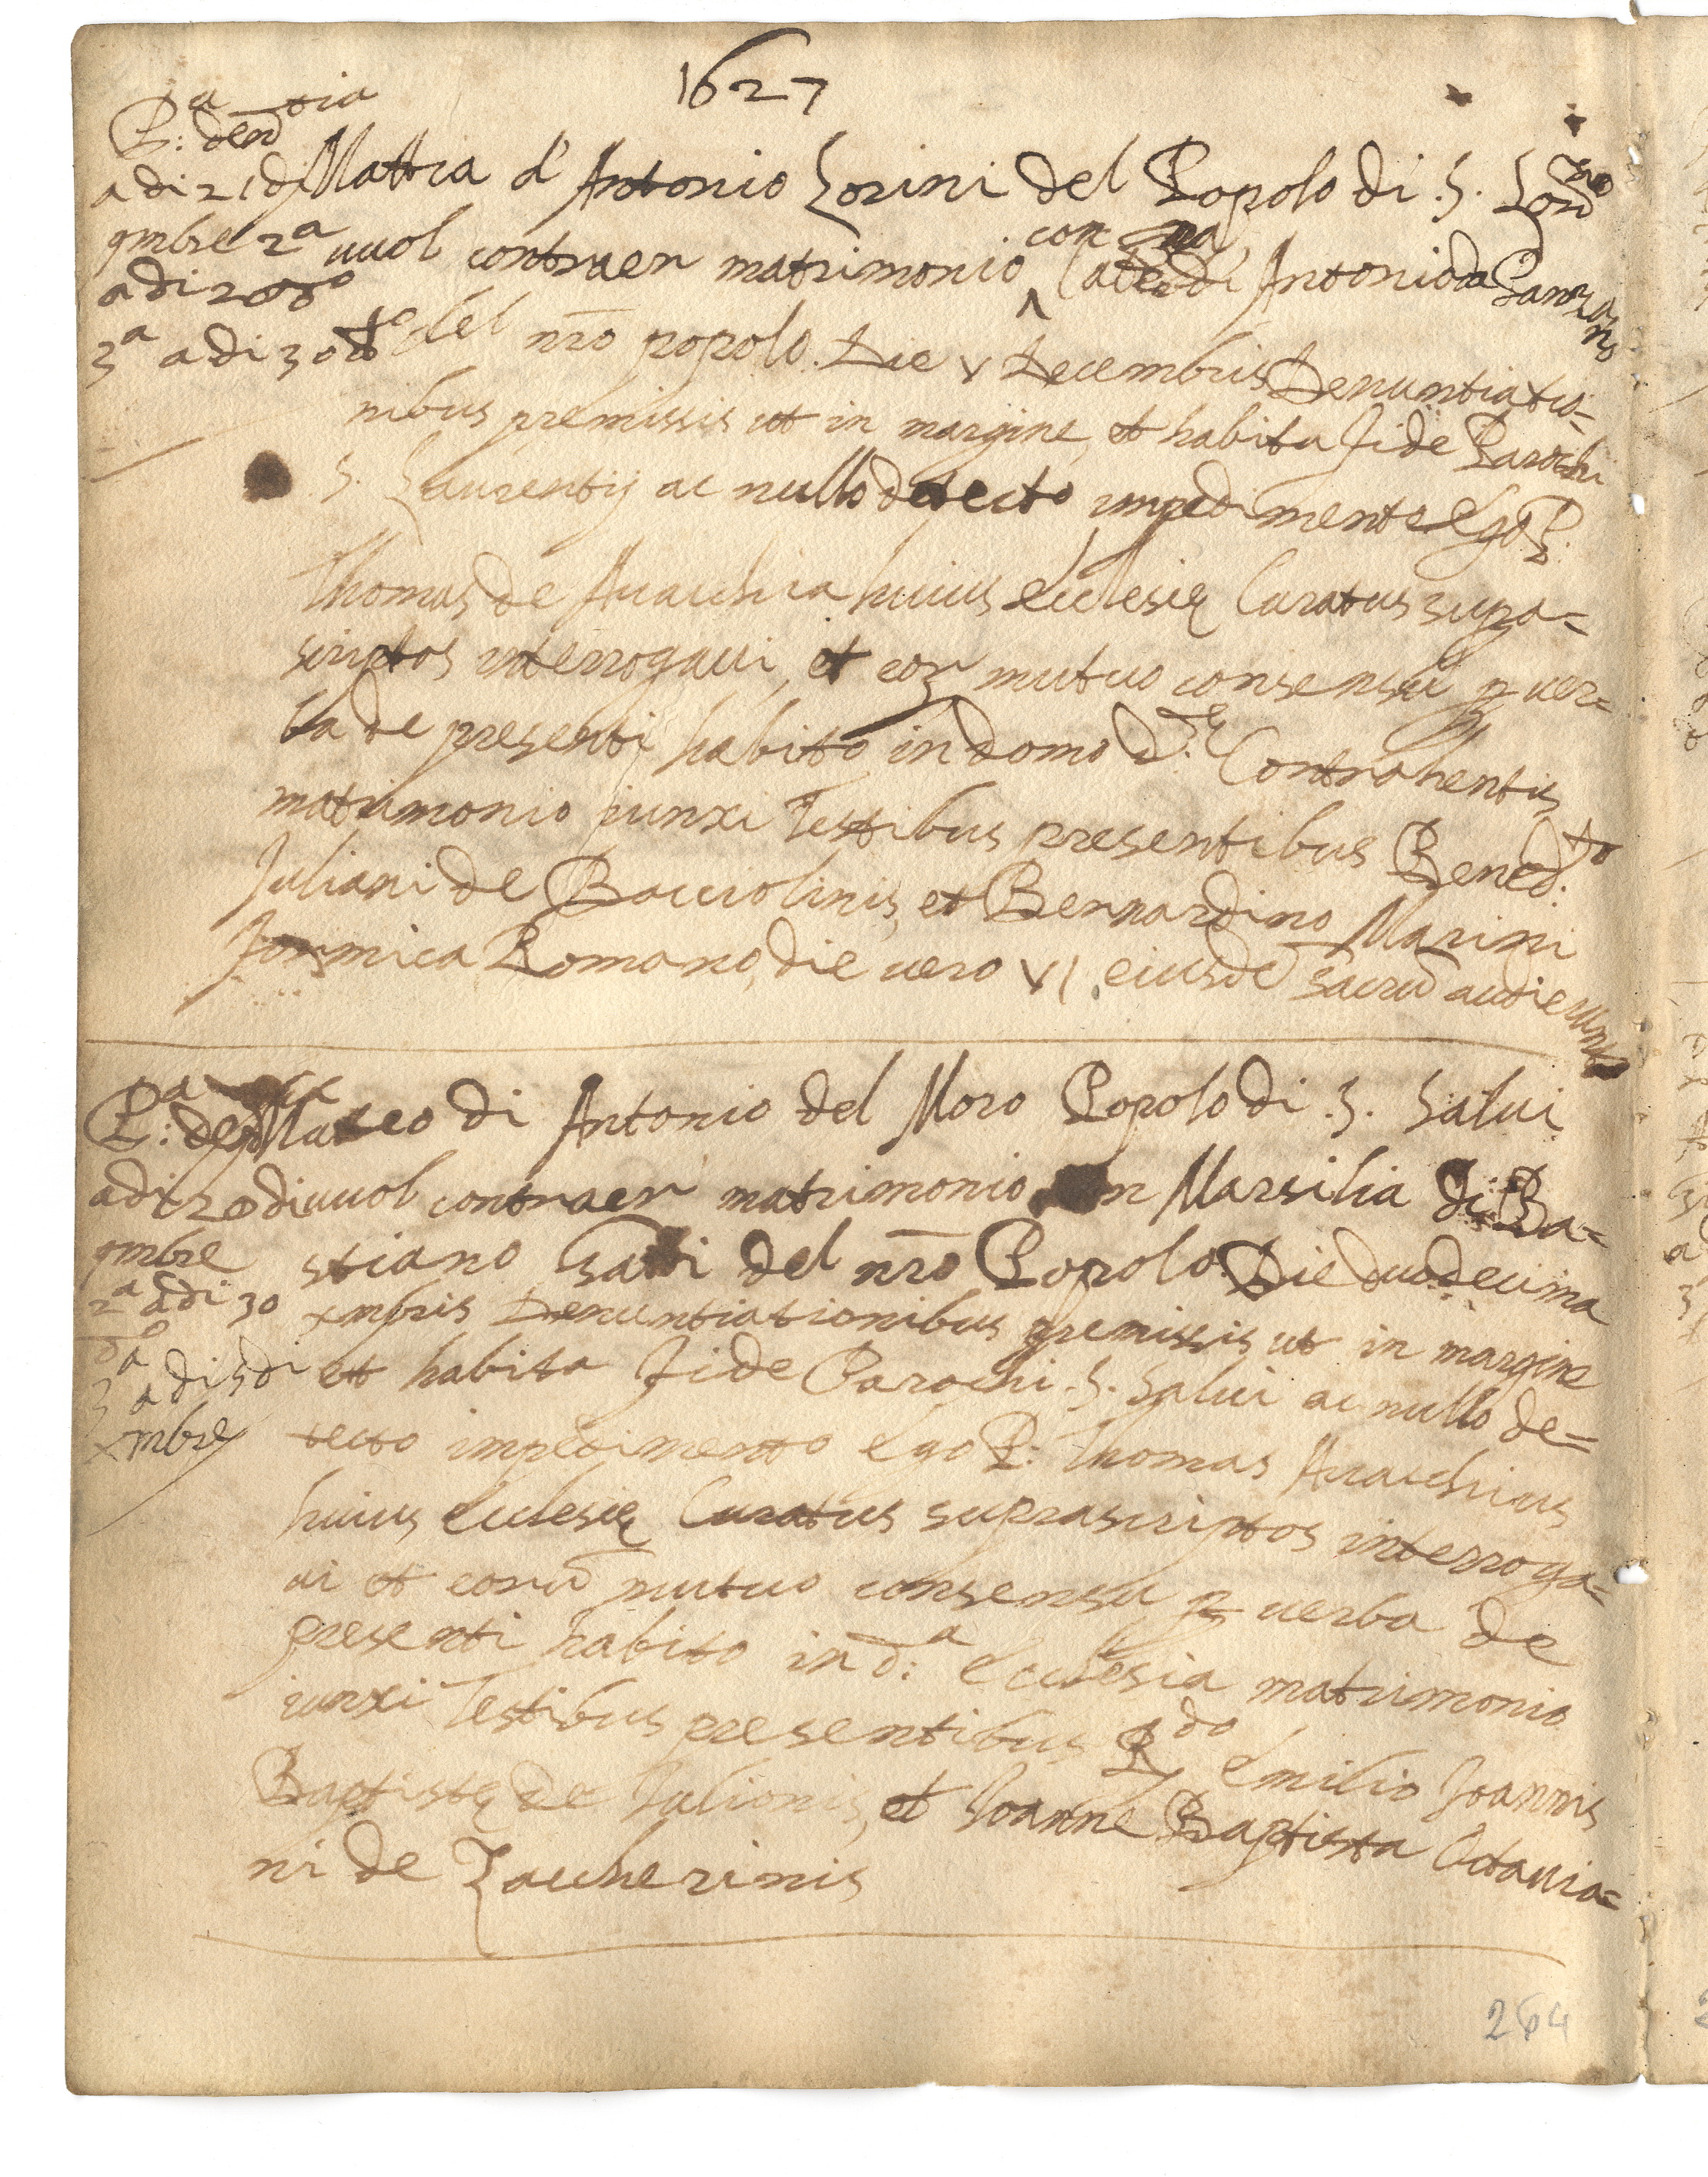 1627
P:ª den̄tia
adi 21 di
9mbre 2ª
adi 28 dº
3ª adi 30 dº
Mattia d'Antonio Lorini del Popolo di .S. Lorn̄zo
uuol contraer matrimonio con Cat.na di Antonio da
del nr̄o popolo. Die V Decembris Denuntiatio=
nibus premissis ut in margine, et habita fide Parochi
S. Laurentij ac nullo detecto impedimento Ego P.
Thomas de Auacchia huius Ecclesię Curatus supra=
scriptos interrogaui, et eoꝝ mutuo consensu p uer=
ba de presenti habito in domo d.ę Contrahentis
matrimonio iunxi Testibus presentibus Bened:to
Juliani de Bacciolinis, et Bernardino Marini
Formica Romano, die uero VI eiusdē sacrū audierunt
P:ª den̄
adi 28 di
9mbre
2ª adi 30
dº
3ª adi 5 di
xmbre
Matteo di Antonio del Moro Popolo di .S. Salui
uuol contraer matrimonio con Marsilia di Ba=
stiano Gatti del nr̄o Popolo. Die duodecima
xmbris Denuntiationibus premissis ut in margine
et habita fide Parochi .S. Salui ac nullo de=
tecto impedimento Ego P: Thomas Auacchius
huius Ecclesię Curatus suprascriptos interroga=
ui et eorū mutuo consensu p uerba de
presenti habito in d:ª Ecclesia matrimonio
iunxi Testibus presentibus R.do Emilio Joannis
Baptistę de Julionis, et Joanne Baptista Octauia=
ni de Zaccherinis
264